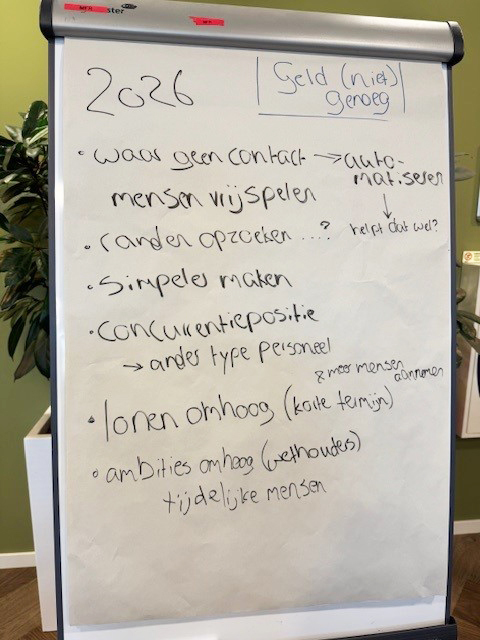 2026
Geld (niet)
genoeg
• waar geen contact → auto-
matiseren
mensen vrijspelen
↓
helpt dat wel?
• randen opzoeken ...?
• simpeler maken
• concurrentiepositie
→ ander type personeel
& meer mensen
aannemen
• lonen omhoog (korte termijn)
• ambities omhoog (wethouders)
tijdelijke mensen